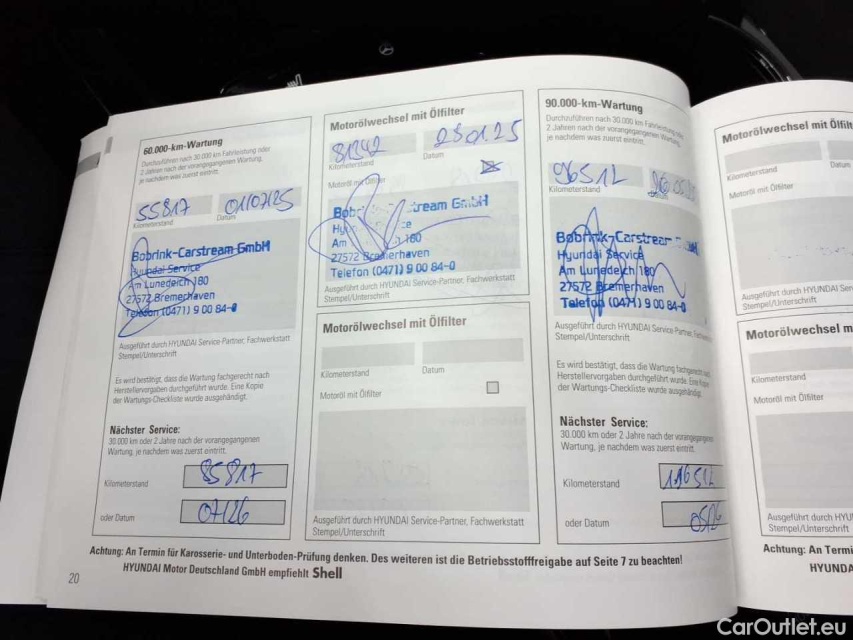 60.000-km-Wartung
Durchzuführen nach 30.000 km Fahrleistung oder
2 Jahren nach der vorangegangenen Wartung,
je nachdem was zuerst eintritt.
55817 01/07/25
Kilometerstand Datum
Bobrink-Carstream GmbH
Hyundai Service
Am Lunedeich 180
27572 Bremerhaven
Telefon (0471) 9 00 84-0
Ausgeführt durch HYUNDAI Service-Partner, Fachwerkstatt
Stempel/Unterschrift
Es wird bestätigt, dass die Wartung fachgerecht nach
Herstellervorgaben durchgeführt wurde. Eine Kopie
der Wartungs-Checkliste wurde ausgehändigt.
Nächster Service:
30.000 km oder 2 Jahre nach der vorangegangenen
Wartung, je nachdem was zuerst eintritt.
Kilometerstand 85817
oder Datum 07/26
Motorölwechsel mit Ölfilter
81342 28.01.25
Kilometerstand Datum
Motoröl mit
Bob ream GmbH
Am 180
27572 Bremerhaven
Telefon (0471) 9 00 84-0
Ausgeführt durch HYUNDAI Service-Partner, Fachwerkstatt
Stempel/Unterschrift
Motorölwechsel mit Ölfilter
Kilometerstand Datum
Motoröl mit Ölfilter
Ausgeführt durch HYUNDAI Service-Partner, Fachwerkstatt
Stempel/Unterschrift
90.000-km-Wartung
Durchzuführen nach 30.000 km Fahrleistung oder
2 Jahren nach der vorangegangenen Wartung,
je nachdem was zuerst eintritt.
96512
Kilometerstand Datum
Bobrink-Carstream
Hyundai Service
Am Lunedeich 180
27572 Bremerhaven
Telefon (0471) 9 00 84-0
Ausgeführt durch HYUNDAI Service-Partner, Fachwerkstatt
Stempel/Unterschrift
Es wird bestätigt, dass die Wartung fachgerecht nach
Herstellervorgaben durchgeführt wurde. Eine Kopie
der Wartungs-Checkliste wurde ausgehändigt.
Nächster Service:
30.000 km oder 2 Jahre nach der vorangegangenen
Wartung, je nachdem was zuerst eintritt.
Kilometerstand 116512
oder Datum 05/26
Achtung: An Termin für Karosserie- und Unterboden-Prüfung denken. Des weiteren ist die Betriebsstofffreigabe auf Seite 7 zu beachten!
20 HYUNDAI Motor Deutschland GmbH empfiehlt Shell
Motorölwechsel mit Ölfilt
Kilometerstand Datum
Motoröl mit Ölfilter
Ausgeführt durch HYUNDAI Ser
Stempel/Unterschrift
Motorölwechsel m
Kilometerstand
Motoröl mit Ölfilter
Ausgeführt durch HYU
Stempel/Unterschrift
Achtung: An Termi
HYUNDA
CarOutlet.eu